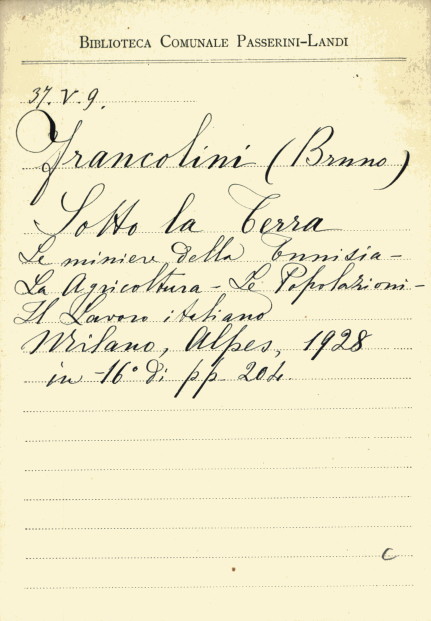 BIBLIOTECA COMUNALE PASSERINI-LANDI
37.V.9.
Francolini (Bruno)
Sotto la Terra
Le miniere della Tunisia -
La Agricoltura - Le Popolazioni -
Il Lavoro italiano
Milano, Alpes, 1928
in -16° di pp 204.
C